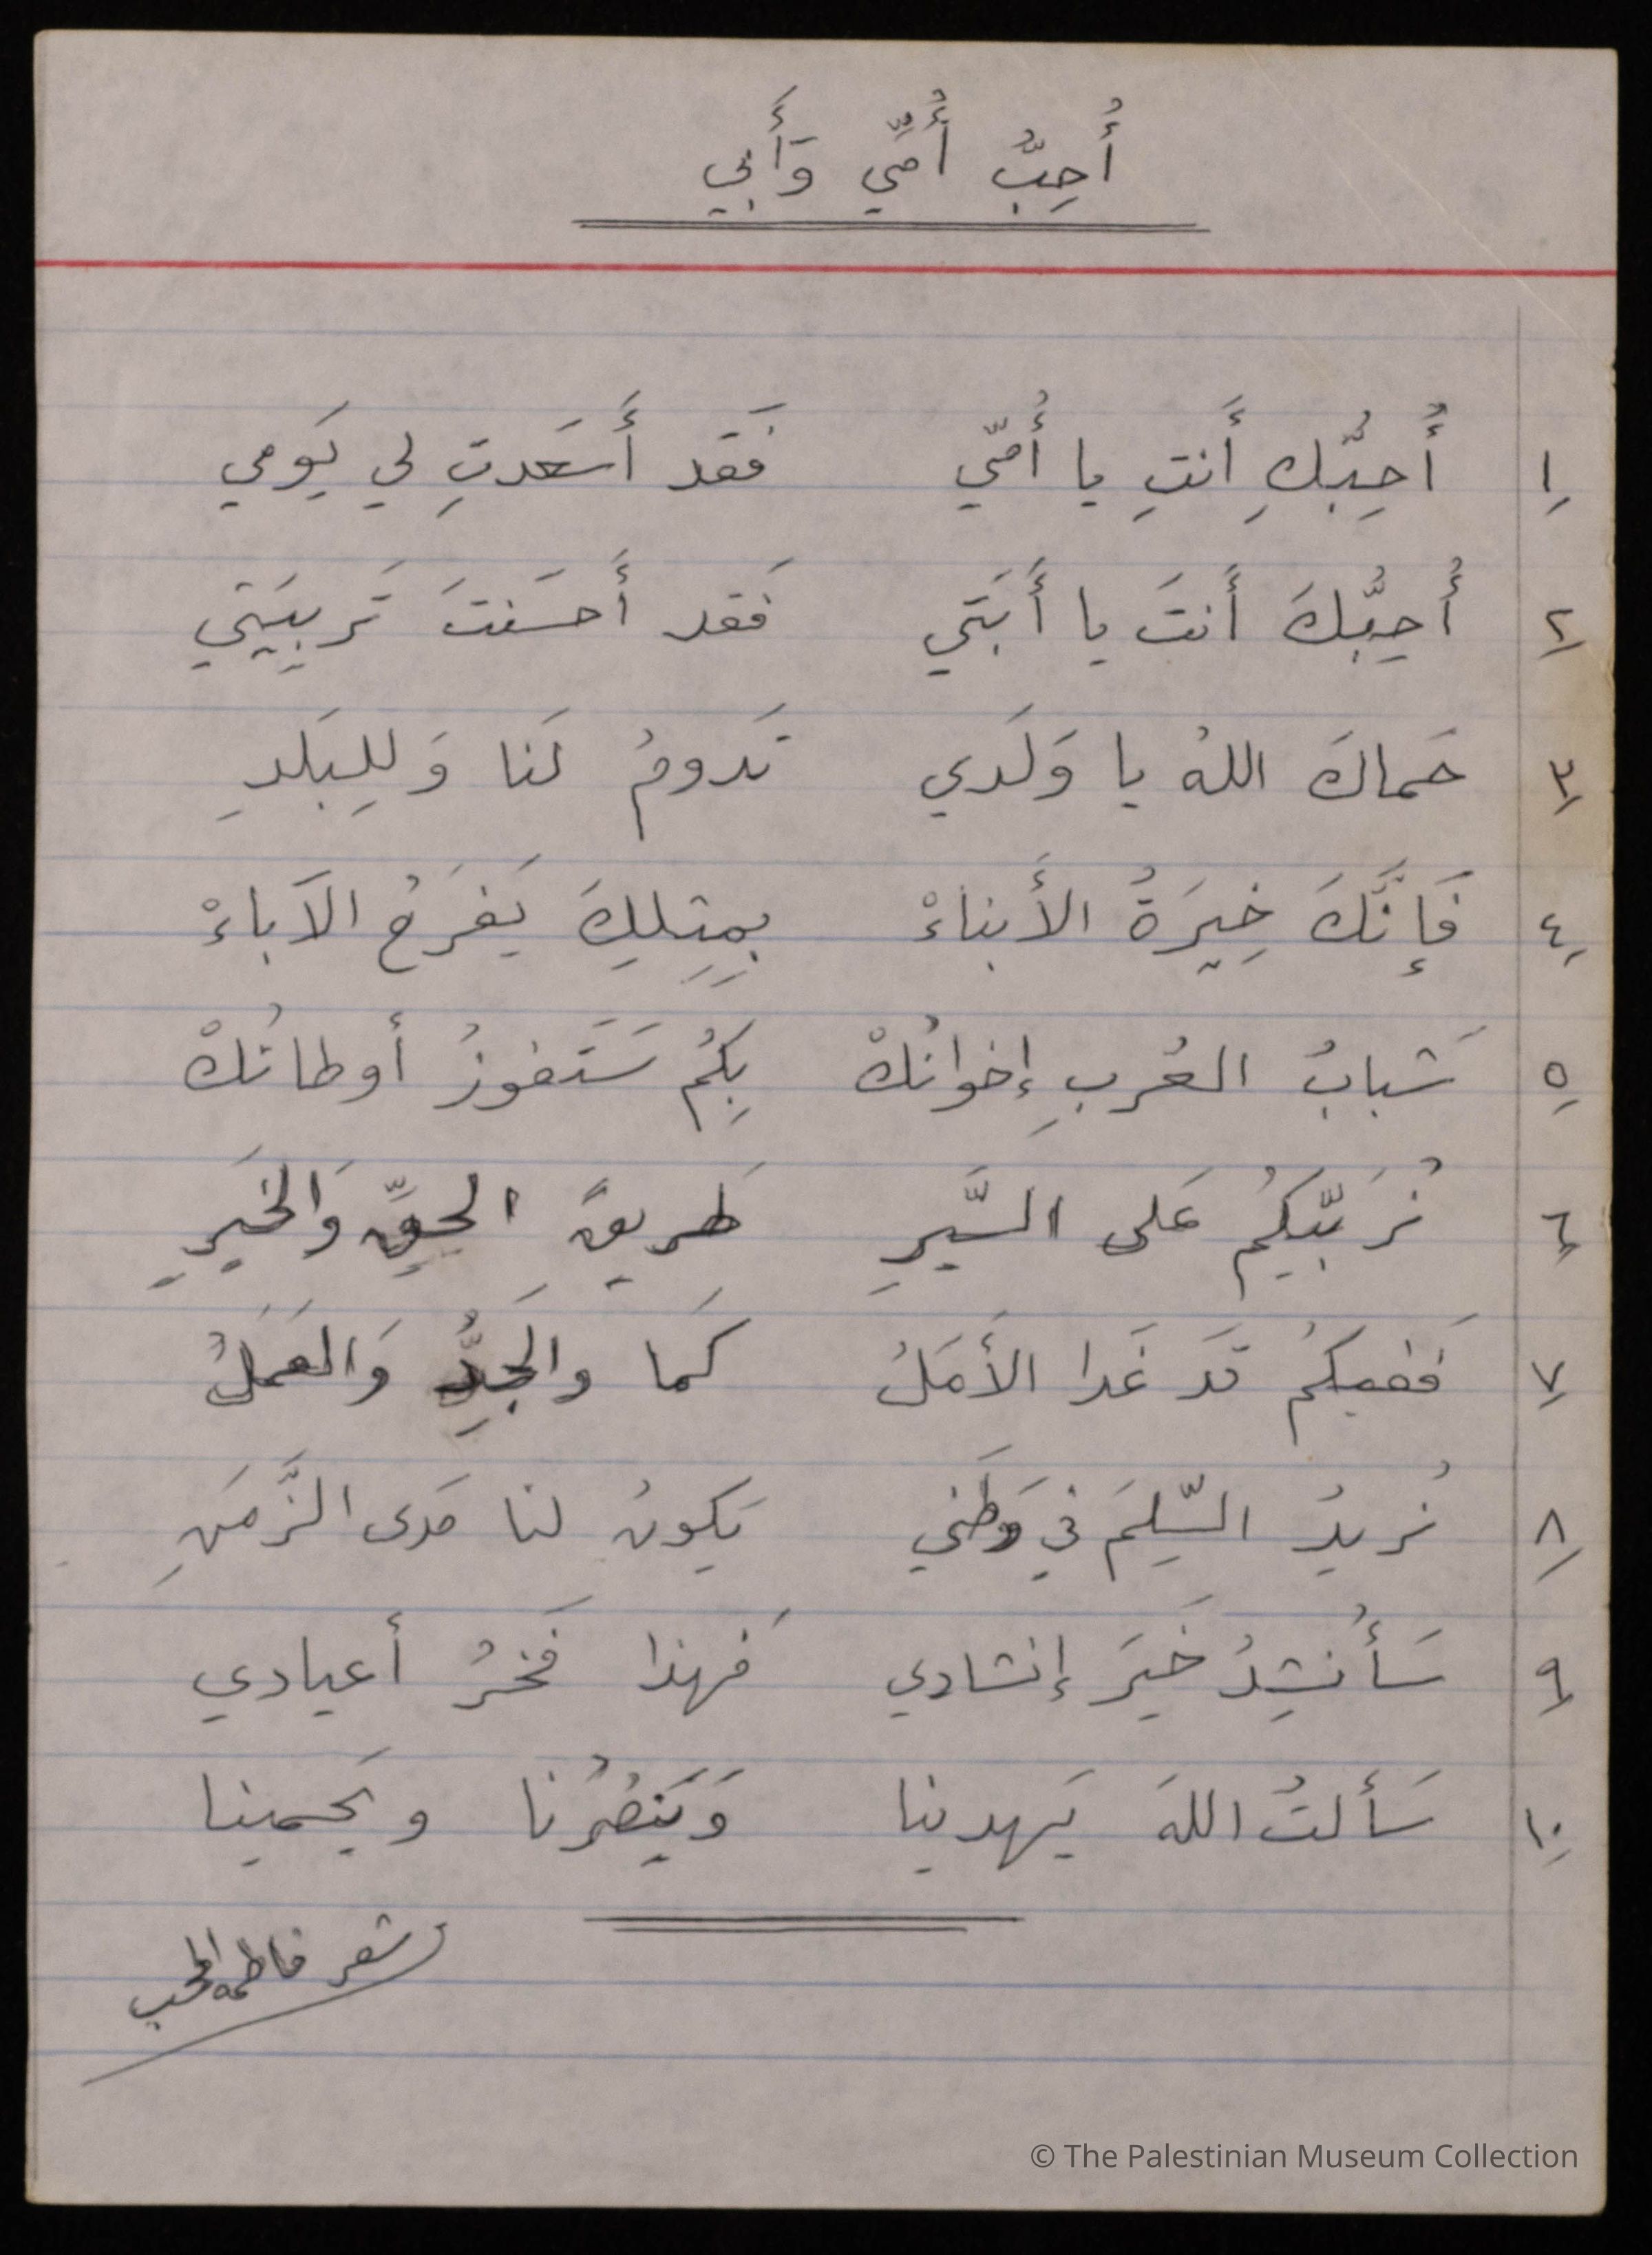 أُحِبُّ أُمِّي وَأَبي
١ أُحِبُّكِ أَنتِ يا أُمّي فَقَد أَسَعَدتِ لي يَومي
٢ أُحِبُّكَ أَنتَ يا أَبَتي فَقَد أَحسَنتَ تَربِيَتي
٣ حَماكَ اللهُ يا وَلَدي تَدومُ لَنا وَلِلبَلَدِ
٤ فَإِنَّكَ خِيرَةُ الأَبناءْ بِمِثلِكَ يَفرَحُ الآباءْ
٥ شَبابُ العُربِ إخوانُكْ بِكُم سَتَفوزُ أوطانُكْ
٦ نُرَبّيكُم عَلى السَّيرِ طَريقَ الحَقِّ وَالخَيرِ
٧ فَفيكُم قَد غَدا الأَمَلُ كَما والجِدُّ وَالعَمَلُ
٨ نُريدُ السِّلمَ في وَطَني يَكونُ لنا مَدى الزَّمَنِ
٩ سَأُنشِدُ خَيرَ إنشادي فَهذا فَخرُ أعيادي
١٠ سَألتُ اللهَ يَهدينا وَيَنصُرُنا ويَحمينا
شعر فاطمة المحب
© The Palestinian Museum Collection